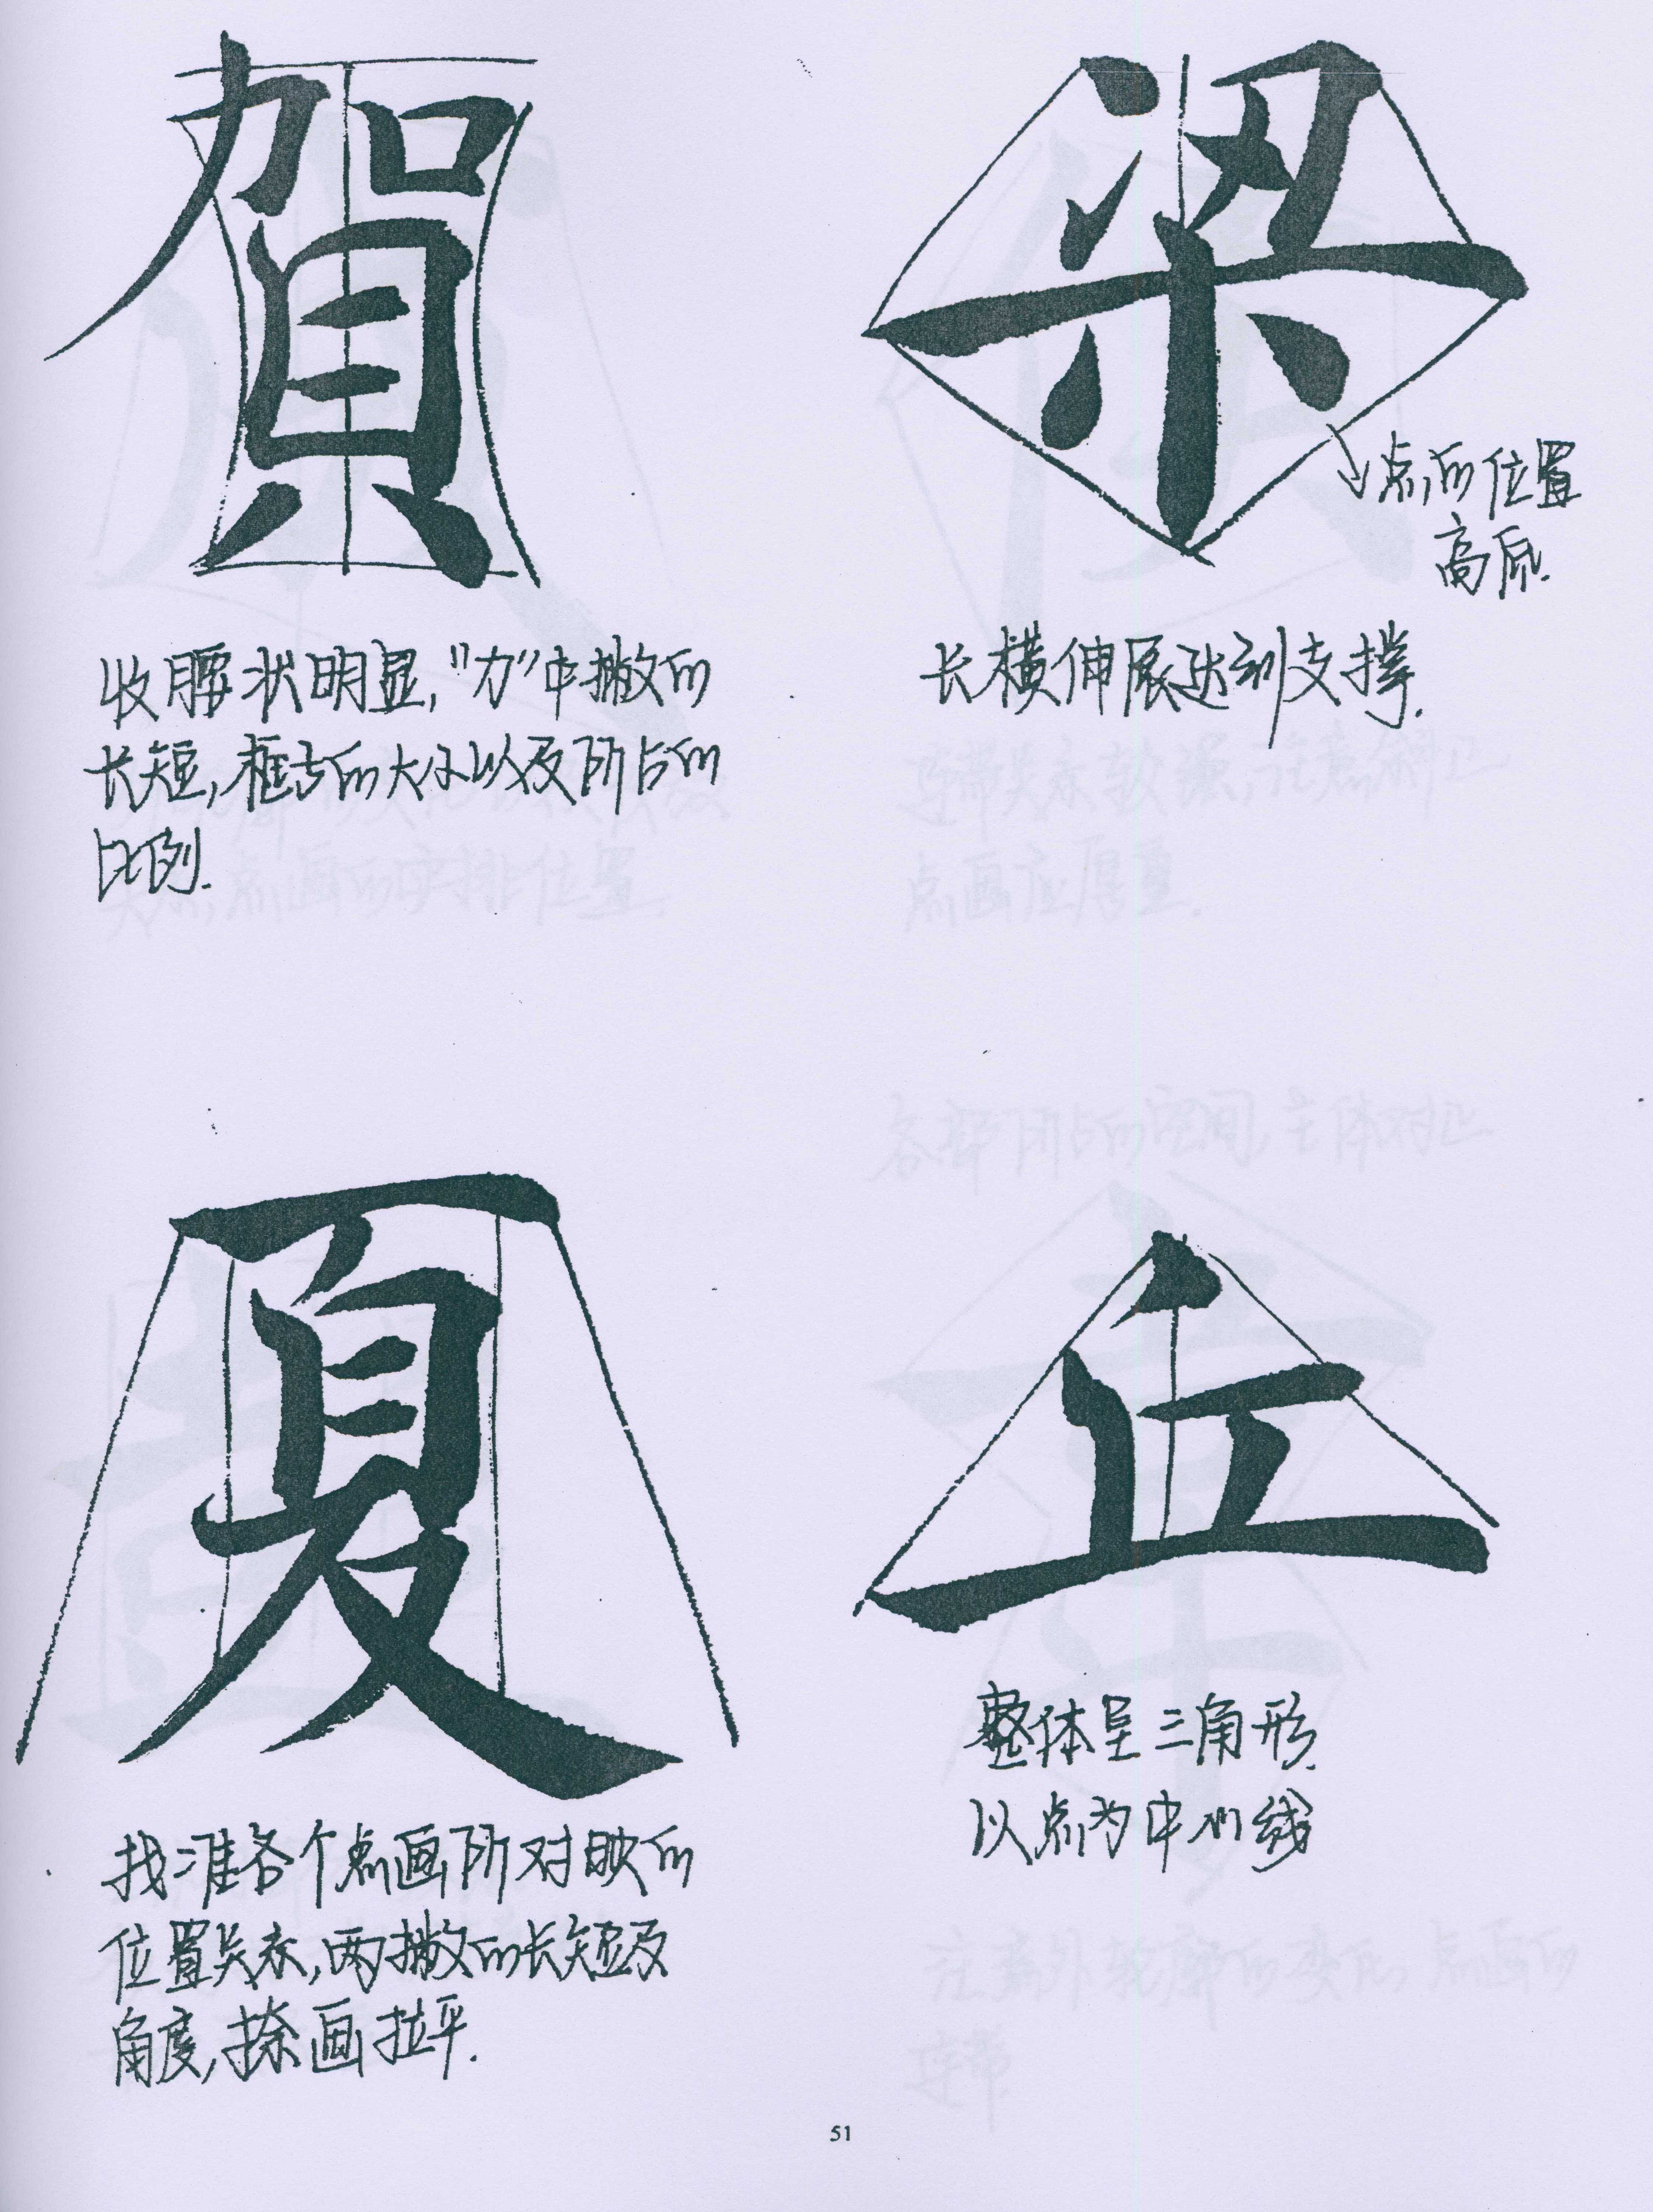 賀
收腰状明显，"力"中撇的
长短，框与的大小以及所占的
比例.
梁
点的位置
高原.
长横伸展达到支撑.
夏
找准各个点画所对映的
位置关系，两撇的长短及
角度，捺画拉平.
丘
整体呈三角形.
以点为中心线
51